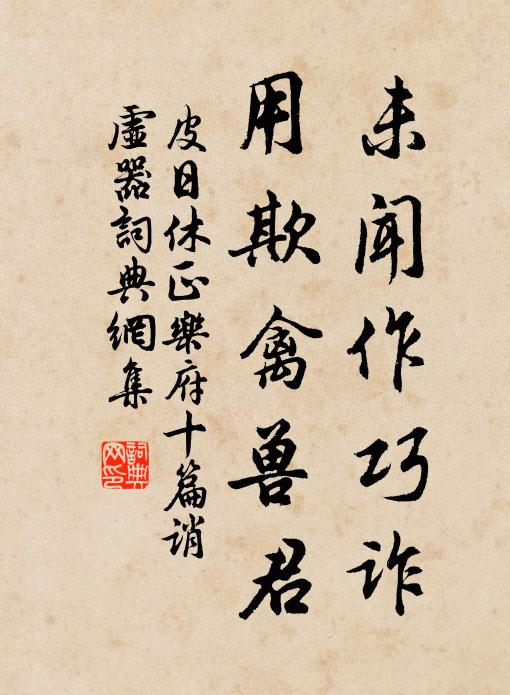 未闻作巧诈
用欺禽兽君
皮日休正樂府十篇誚
虛器詞典網集
詞典
网印